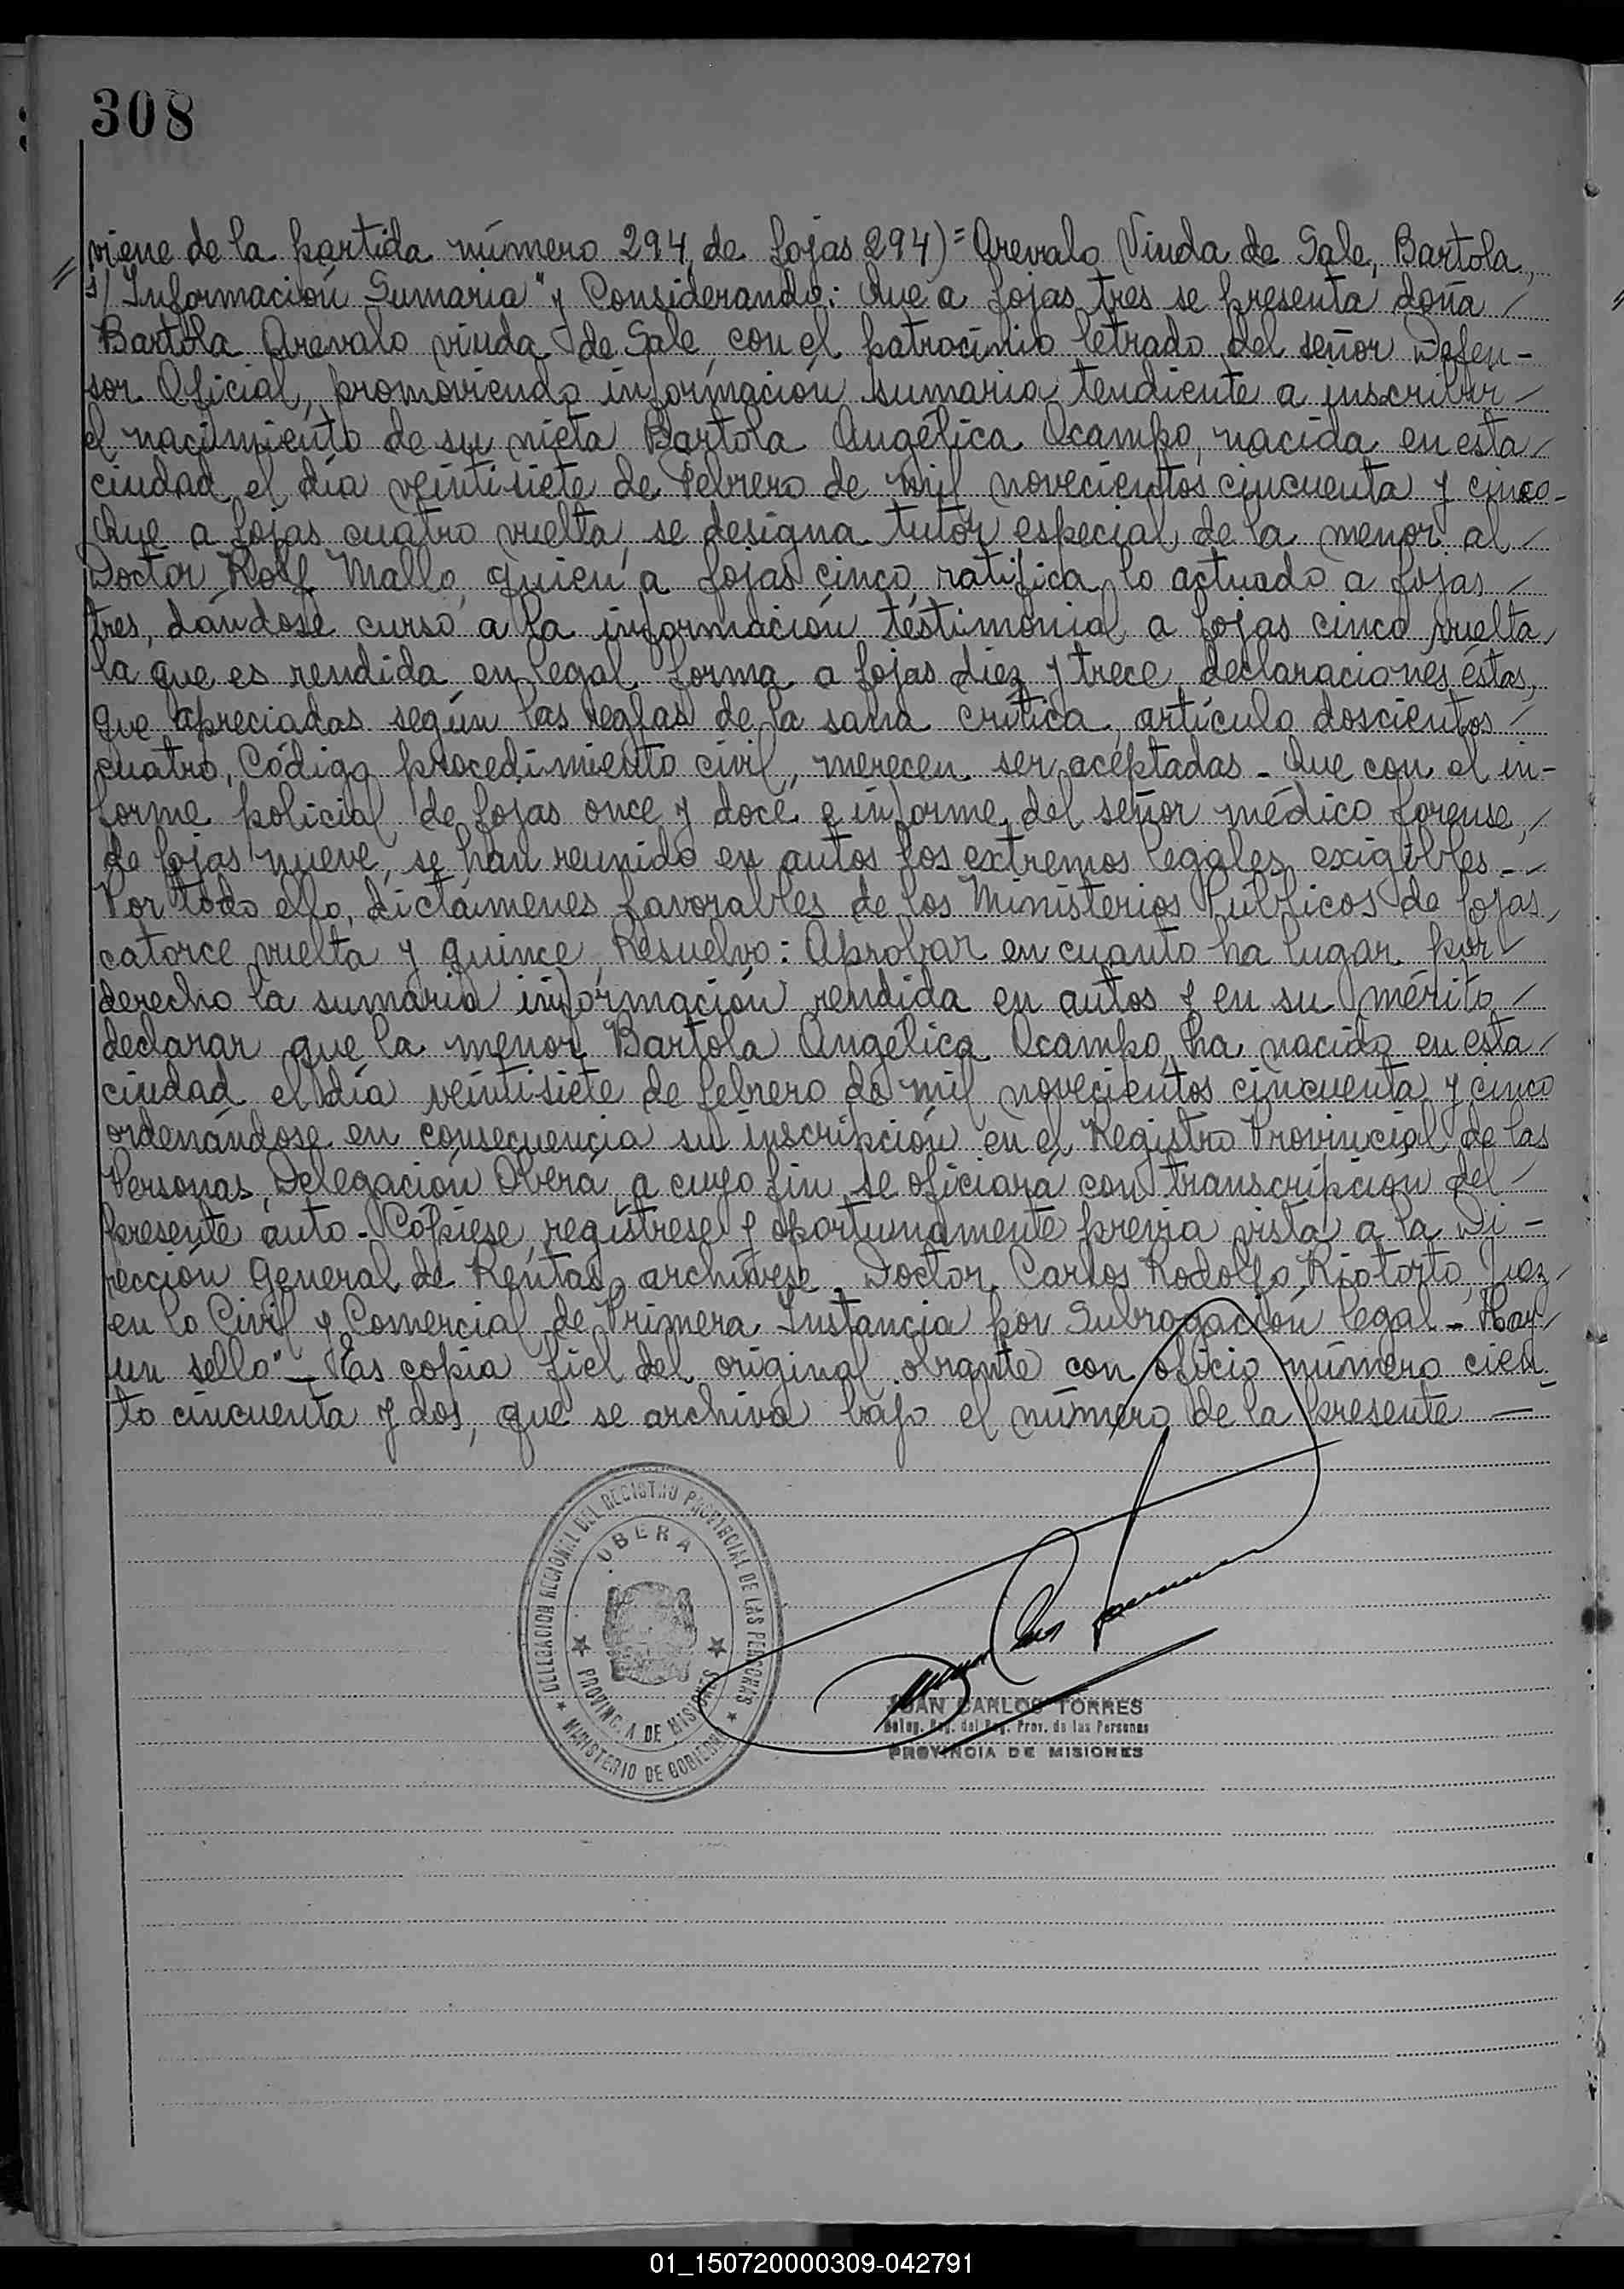 308
viene de la partida número 294, de fojas 294) = Arevalo Viuda de Sale, Bartola,
s/ Información Sumaria" y Considerando: Que a fojas tres se presenta doña /
Bartola Arevalo viuda de Sale, con el patrocinio letrado del señor Defen-
sor Oficial, promoviendo información sumaria tendiente a inscribir /
el nacimiento de su nieta Bartola Angélica Ocampo, nacida en esta /
ciudad el día veintisiete de Febrero de mil novecientos cincuenta y cinco -
Que a fojas cuatro vuelta, se designa tutor especial de la menor al /
Doctor Rolf Mallo, quien a fojas cinco, ratifica lo actuado a fojas /
tres, dándose curso a la información testimonial a fojas cinco vuelta,
la que es rendida en legal forma a fojas diez y trece, declaraciones éstas,
que apreciadas según las reglas de la sana crítica, artículo doscientos /
cuatro, Código procedimiento civil, merecen ser aceptadas - Que con el in-
forme policial de fojas once y doce e informe del señor médico forense, /
de fojas nueve, se han reunido en autos los extremos legales exigibles - /
Por todo ello, dictámenes favorables de los Ministerios Públicos de fojas,
catorce vuelta y quince, Resuelvo: Aprobar en cuanto ha lugar por /
derecho la sumaria información rendida en autos y en su mérito /
declarar que la menor Bartola Angélica Ocampo, ha nacido en esta /
ciudad el día veintisiete de febrero de mil novecientos cincuenta y cinco
ordenándose en consecuencia su inscripción en el Registro Provincial de las
Personas, Delegación Oberá, a cuyo fin se oficiará con transcripción del /
presente auto - Cópiese, regístrese y oportunamente previa vista a la Di-
rección General de Rentas, archívese - Doctor Carlos Rodolfo Riotorto, Juez /
en lo Civil y Comercial de Primera Instancia por Subrogación legal - Hay /
un sello" - Es copia fiel del original obrante con oficio número cien-
to cincuenta y dos, que se archiva bajo el número de la presente -
DELEGACION REGIONAL DEL REGISTRO PROVINCIAL DE LAS PERSONAS
OBERA
PROVINCIA DE MISIONES
MINISTERIO DE GOBIERNO
JUAN CARLOS TORRES
Deleg. Reg. del Reg. Prov. de las Personas
PROVINCIA DE MISIONES
01_150720000309-042791